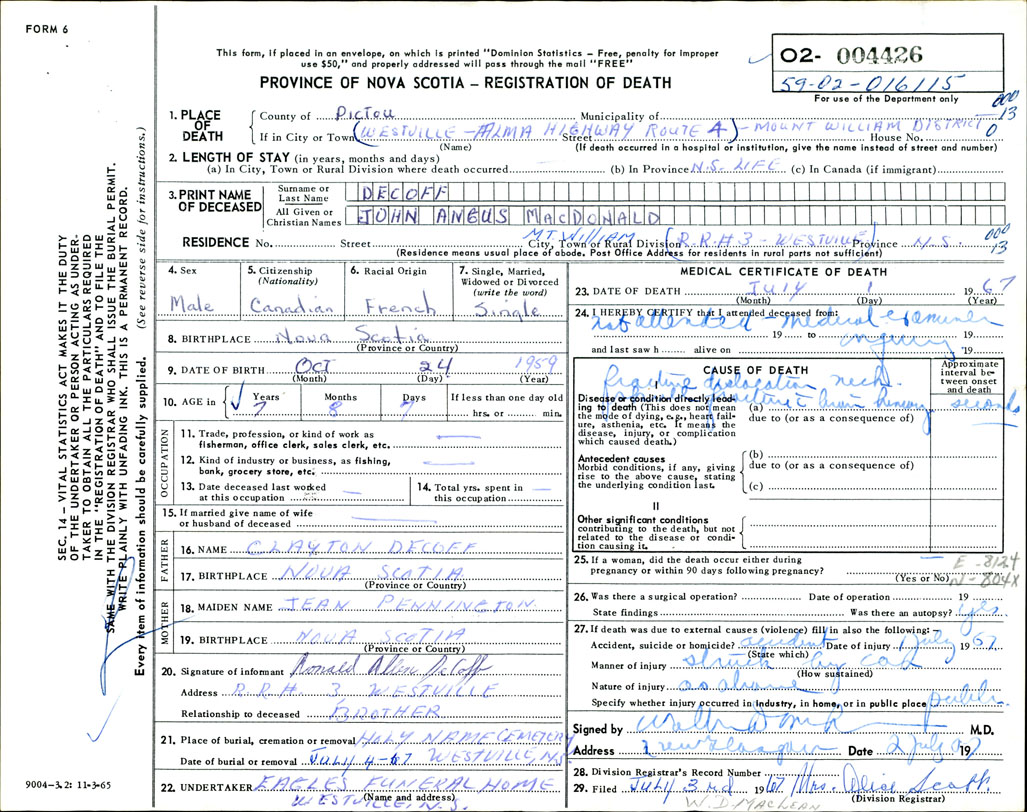 FORM 6
This form, if placed in an envelope, on which is printed "Dominion Statistics – Free, penalty for improper
use $50," and properly addressed will pass through the mail "FREE"
PROVINCE OF NOVA SCOTIA – REGISTRATION OF DEATH
O2- 004426
59-02-016115
For use of the Department only
000
13
0
1. PLACE OF DEATH
County of PICTOU Municipality of
If in City or Town (WESTVILLE – ALMA HIGHWAY ROUTE 4) – MOUNT WILLIAM DISTRICT House No.
(Name) (If death occurred in a hospital or institution, give the name instead of street and number)
2. LENGTH OF STAY (in years, months and days)
(a) In City, Town or Rural Division where death occurred (b) In Province N.S. LIFE (c) In Canada (if immigrant)
3. PRINT NAME OF DECEASED
Surname or Last Name DECOFF
All Given or Christian Names JOHN ANGUS MACDONALD
MT. WILLIAM
RESIDENCE No. Street City, Town or Rural Division (R.R.#3 – WESTVILLE) Province N.S. 000 13
(Residence means usual place of abode. Post Office Address for residents in rural parts not sufficient)
4. Sex Male
5. Citizenship (Nationality) Canadian
6. Racial Origin French
7. Single, Married, Widowed or Divorced (write the word) Single
8. BIRTHPLACE Nova Scotia
(Province or Country)
9. DATE OF BIRTH OCT 24 1959
(Month) (Day) (Year)
10. AGE in Years Months Days If less than one day old
7 8 7 hrs. or min.
OCCUPATION
11. Trade, profession, or kind of work as
fisherman, office clerk, sales clerk, etc.
12. Kind of industry or business, as fishing,
bank, grocery store, etc.
13. Date deceased last worked at this occupation
14. Total yrs. spent in this occupation
15. If married give name of wife
or husband of deceased
FATHER
16. NAME CLAYTON DECOFF
17. BIRTHPLACE NOVA SCOTIA
(Province or Country)
MOTHER
18. MAIDEN NAME JEAN PENNINGTON
19. BIRTHPLACE NOVA SCOTIA
(Province or Country)
20. Signature of informant Ronald Allen DeCoff
Address R.R# 3 WESTVILLE
Relationship to deceased BROTHER
21. Place of burial, cremation or removal HOLY NAME CEMETERY
Date of burial or removal JULY 4-67 WESTVILLE, N.S.
22. UNDERTAKER EAGLES FUNERAL HOME
(Name and address)
WESTVILLE, N.S.
MEDICAL CERTIFICATE OF DEATH
23. DATE OF DEATH JULY 1 1967
(Month) (Day) (Year)
24. I HEREBY CERTIFY that I attended deceased from:
not attended – medical examiner
19 to 19
inquiry
and last saw h alive on 19
CAUSE OF DEATH
Approximate interval between onset and death
fracture dislocation neck
Disease or condition directly leading to death (This does not mean the mode of dying, e.g., heart failure, asthenia, etc. It means the disease, injury, or complication which caused death.)
(a) seconds
due to (or as a consequence of)
Antecedent causes
Morbid conditions, if any, giving rise to the above cause, stating the underlying condition last.
(b)
due to (or as a consequence of)
(c)
II
Other significant conditions
contributing to the death, but not related to the disease or condition causing it.
25. If a woman, did the death occur either during
pregnancy or within 90 days following pregnancy?
(Yes or No)
E-8124
N-804X
26. Was there a surgical operation? Date of operation 19
State findings Was there an autopsy? yes
27. If death was due to external causes (violence) fill in also the following:
Accident, suicide or homicide? accident Date of injury 1 July 1967
(State which)
Manner of injury struck by car
(How sustained)
Nature of injury as above
Specify whether injury occurred in industry, in home, or in public place public
Signed by M.D.
Address New Glasgow Date 2 July 1967
28. Division Registrar's Record Number
29. Filed JULY 3rd 1967 Mrs. Alice Scott
(Division Registrar)
W.D. MACLEAN
SEC. 14 – VITAL STATISTICS ACT MAKES IT THE DUTY
OF THE UNDERTAKER OR PERSON ACTING AS UNDERTAKER
TO OBTAIN ALL THE PARTICULARS REQUIRED
IN THE "REGISTRATION OF DEATH" AND TO FILE THE
SAME WITH THE DIVISION REGISTRAR WHO SHALL ISSUE THE BURIAL PERMIT.
WRITE PLAINLY WITH UNFADING INK. THIS IS A PERMANENT RECORD.
Every item of information should be carefully supplied. (See reverse side for instructions.)
9004-3.2: 11-3-65